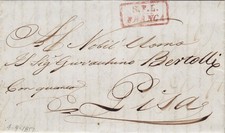 S.P.L.
FRANCA
Al Nobil Uomo
Il Sig Giovacchino Bertolli
Con quanto
Pisa